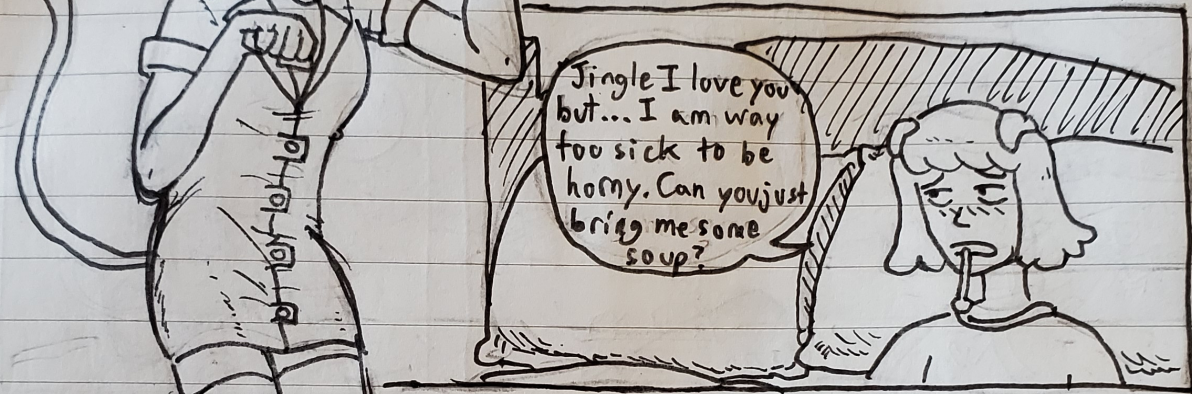 Jingle I love you
but... I am way
too sick to be
horny. Can you just
bring me some
soup?